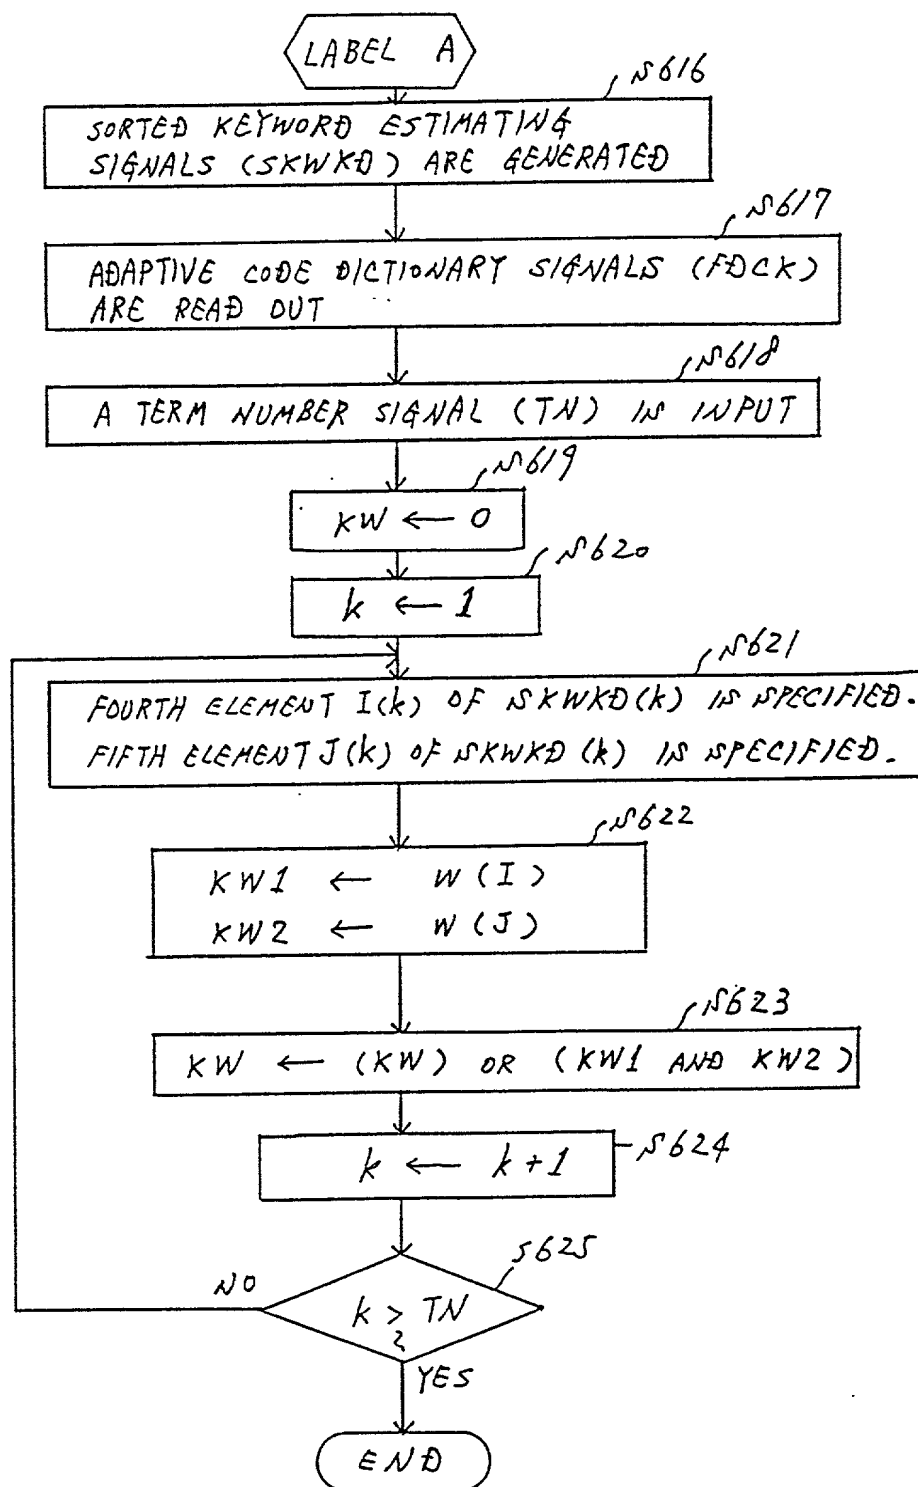 LABEL A
S616
SORTED KEYWORD ESTIMATING
SIGNALS (SKWKD) ARE GENERATED
S617
ADAPTIVE CODE DICTIONARY SIGNALS (FDCK)
ARE READ OUT
S618
A TERM NUMBER SIGNAL (TN) IS INPUT
S619
KW ← 0
S620
k ← 1
S621
FOURTH ELEMENT I(k) OF SKWKD(k) IS SPECIFIED.
FIFTH ELEMENT J(k) OF SKWKD (k) IS SPECIFIED.
S622
KW1 ← W (I)
KW2 ← W (J)
S623
KW ← (KW) OR (KW1 AND KW2)
k ← k+1
S624
S625
NO
k > TN
?
YES
END